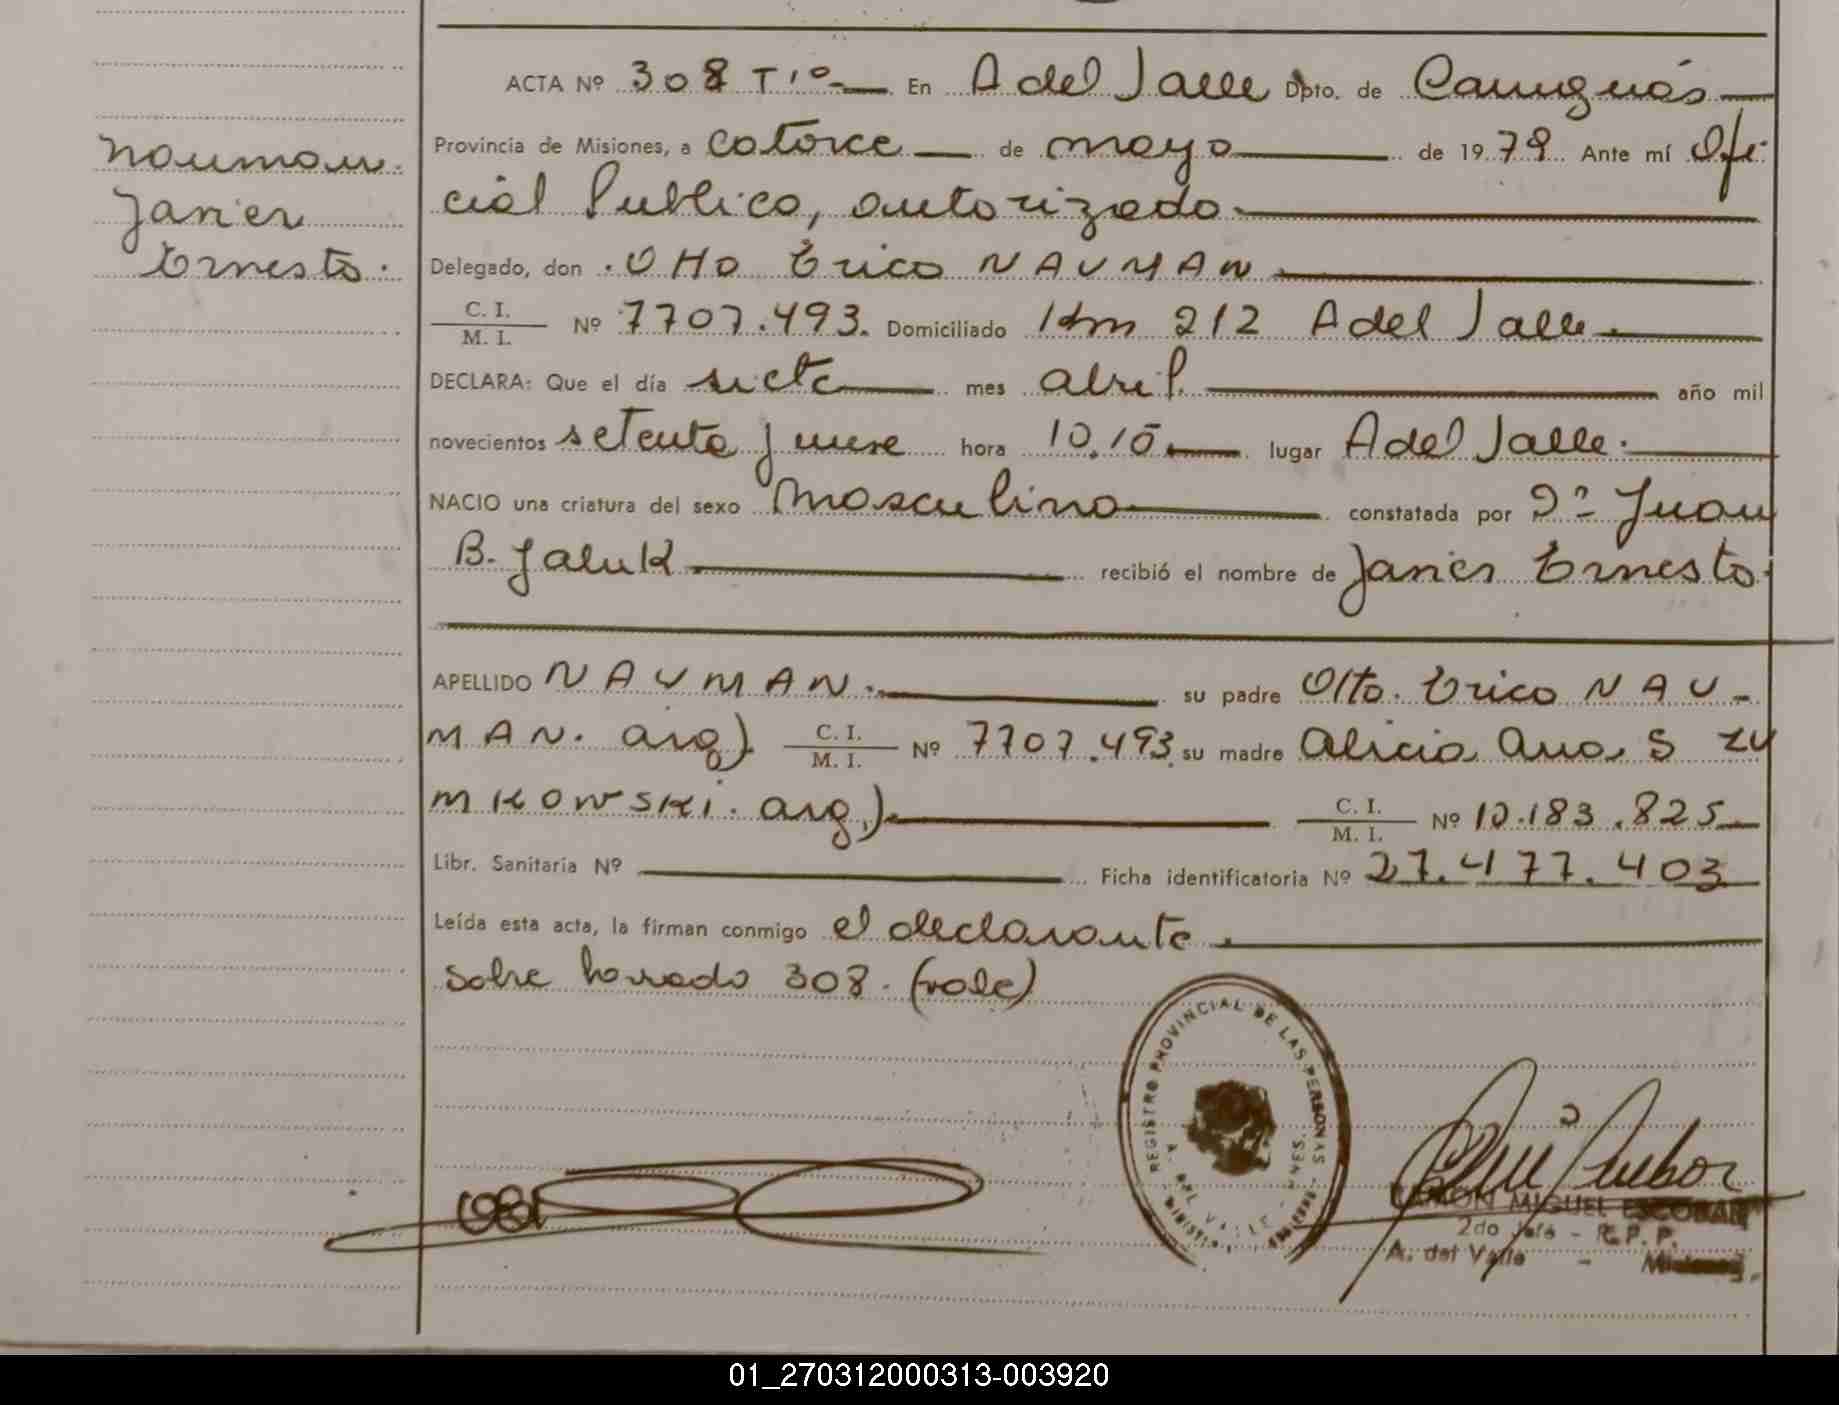 ACTA Nº 308 Tº 1º En A del Valle Dpto. de Cainguás
Nauman
Javier
Ernesto.
Provincia de Misiones, a catorce de mayo de 1979 Ante mí Ofi
cial Publico, autorizado
Delegado, don Otto Erico NAUMAN
C. I.
M. I. Nº 7707.493. Domiciliado Km 212 A del Valle
DECLARA: Que el día siete mes abril año mil
novecientos setenta y nueve hora 10.15 lugar A del Valle.
NACIO una criatura del sexo Masculino constatada por Dº Juan
B. Jaluk recibió el nombre de Javier Ernesto.
APELLIDO NAUMAN. su padre Otto. Erico NAU-
MAN. arg) C. I.
M. I. Nº 7707.493 su madre Alicia Ana. S ZY
MKOWSKI. arg.) C. I.
M. I. Nº 10.183.825
Libr. Sanitaria Nº Ficha identificatoria Nº 27.477.403
Leída esta acta, la firman conmigo el declarante.
Sobre borrado 308. (vale)
REGISTRO PROVINCIAL DE LAS PERSONAS
A. DEL VALLE
RAMON MIGUEL ESCOBAR
2do Jefe - R. P. P.
A. del Valle - Misiones
01_270312000313-003920